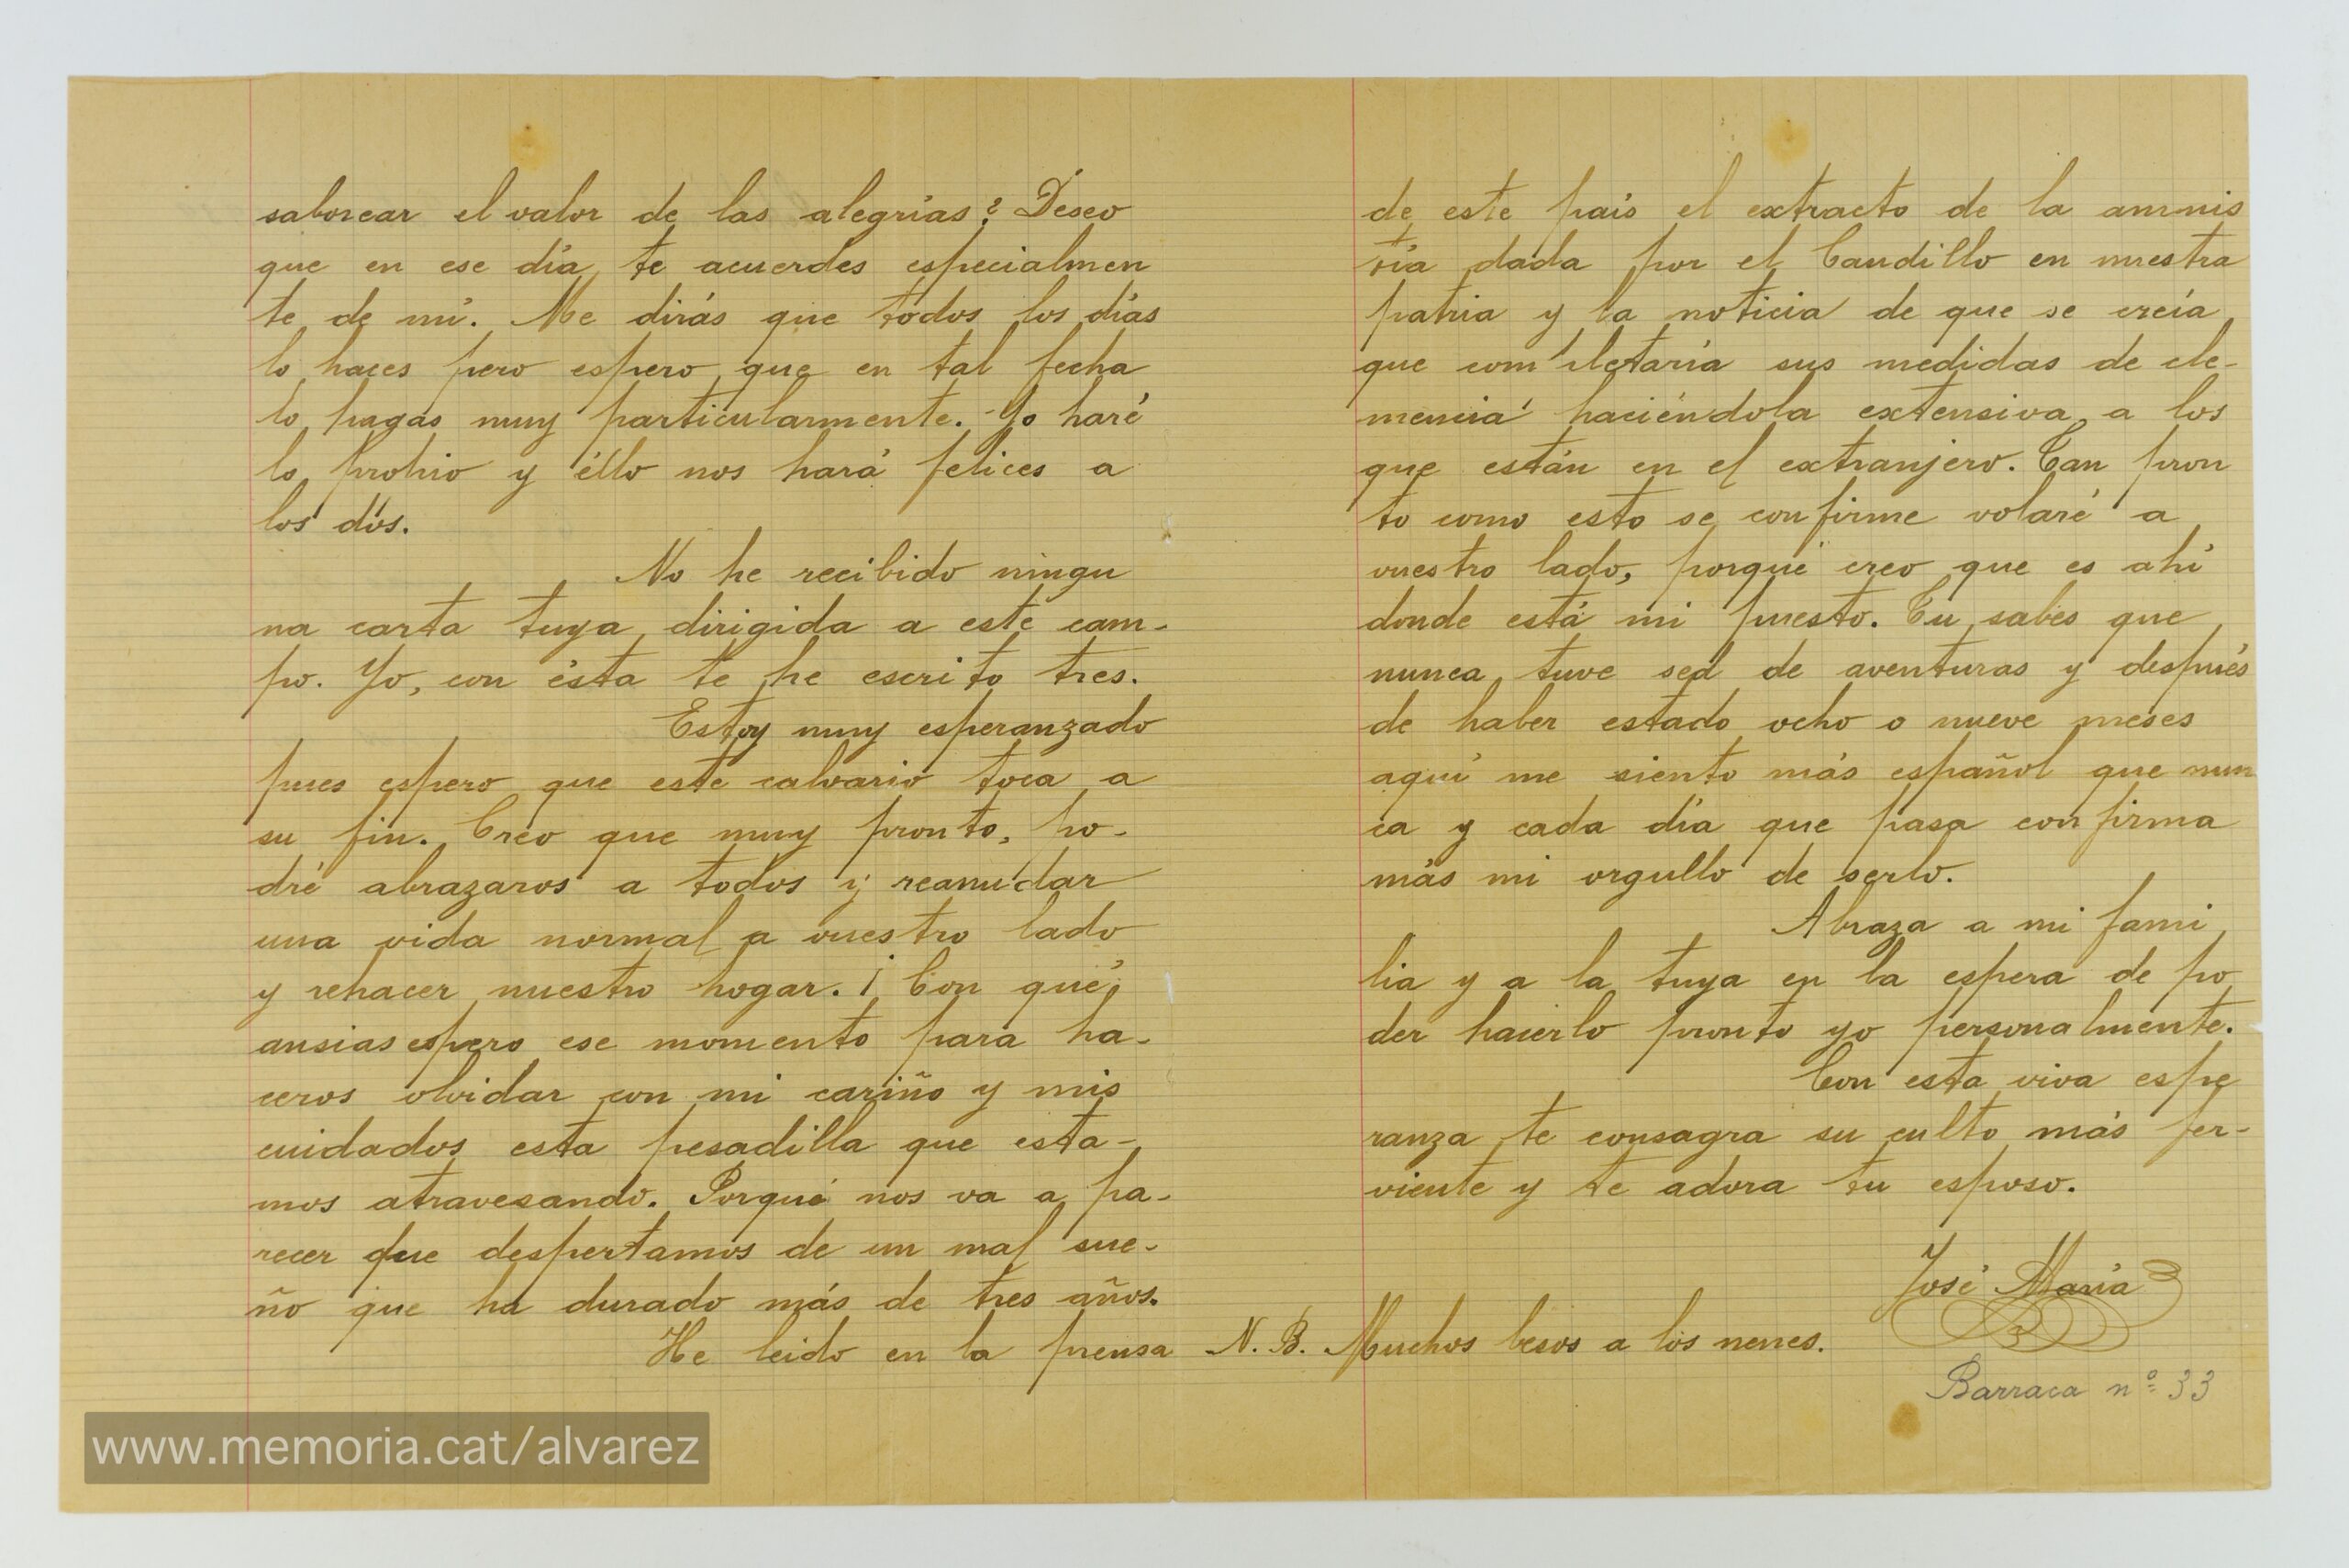 saborear el valor de las alegrías? Deseo
que en ese día te acuerdes especialmen
te de mí. Me dirás que todos los días
lo haces pero espero que en tal fecha
lo hagas muy particularmente. Yo haré
lo propio y éllo nos hará felices a
los dos.
No he recibido ningu
na carta tuya dirigida a este cam-
po. Yo, con ésta te he escrito tres.
Estoy muy esperanzado
pues espero que este calvario toca a
su fin. Creo que muy pronto, po-
dré abrazaros a todos y reanudar
una vida normal a vuestro lado
y rehacer nuestro hogar. ¡Con qué
ansias espero ese momento para ha-
ceros olvidar con mi cariño y mis
cuidados esta pesadilla que esta-
mos atravesando. Porqué nos va a pa-
recer que despertamos de un mal sue-
ño que ha durado más de tres años.
He leido en la prensa
de este país el extracto de la amnis
tía dada por el Caudillo en nuestra
patria y la noticia de que se creía
que completaría sus medidas de cle-
mencia haciéndola extensiva a los
que están en el extranjero. Tan pron
to como esto se confirme volaré a
vuestro lado, porque creo que es ahí
donde está mi puesto. Tu sabes que
nunca tuve sed de aventuras y después
de haber estado ocho o nueve meses
aquí me siento más español que nun
ca y cada día que pasa confirma
más mi orgullo de serlo.
Abraza a mi fami
lia y a la tuya en la espera de po
der hacerlo pronto yo personalmente.
Con esta viva espe
ranza te consagra su culto más fer-
viente y te adora tu esposo.
José María
N. B. Muchos besos a los nenes.
Barraca nº 33
www.memoria.cat/alvarez